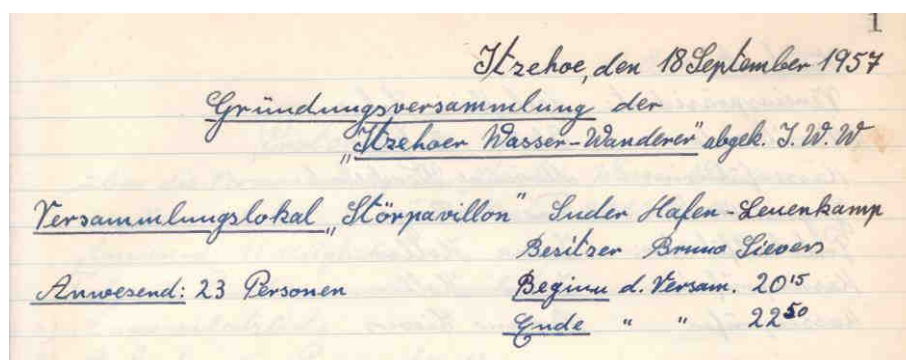 1
Itzehoe, den 18 September 1957
Gründungsversammlung der
"Itzehoer Wasser-Wanderer" abgek. I.W.W
Versammlungslokal „Störpavillon" Suder Hafen-Leuenkamp
Besitzer Bruno Sievers
Anwesend: 23 Personen Beginn d. Versam. 20¹⁵
Ende " " 22⁵⁰